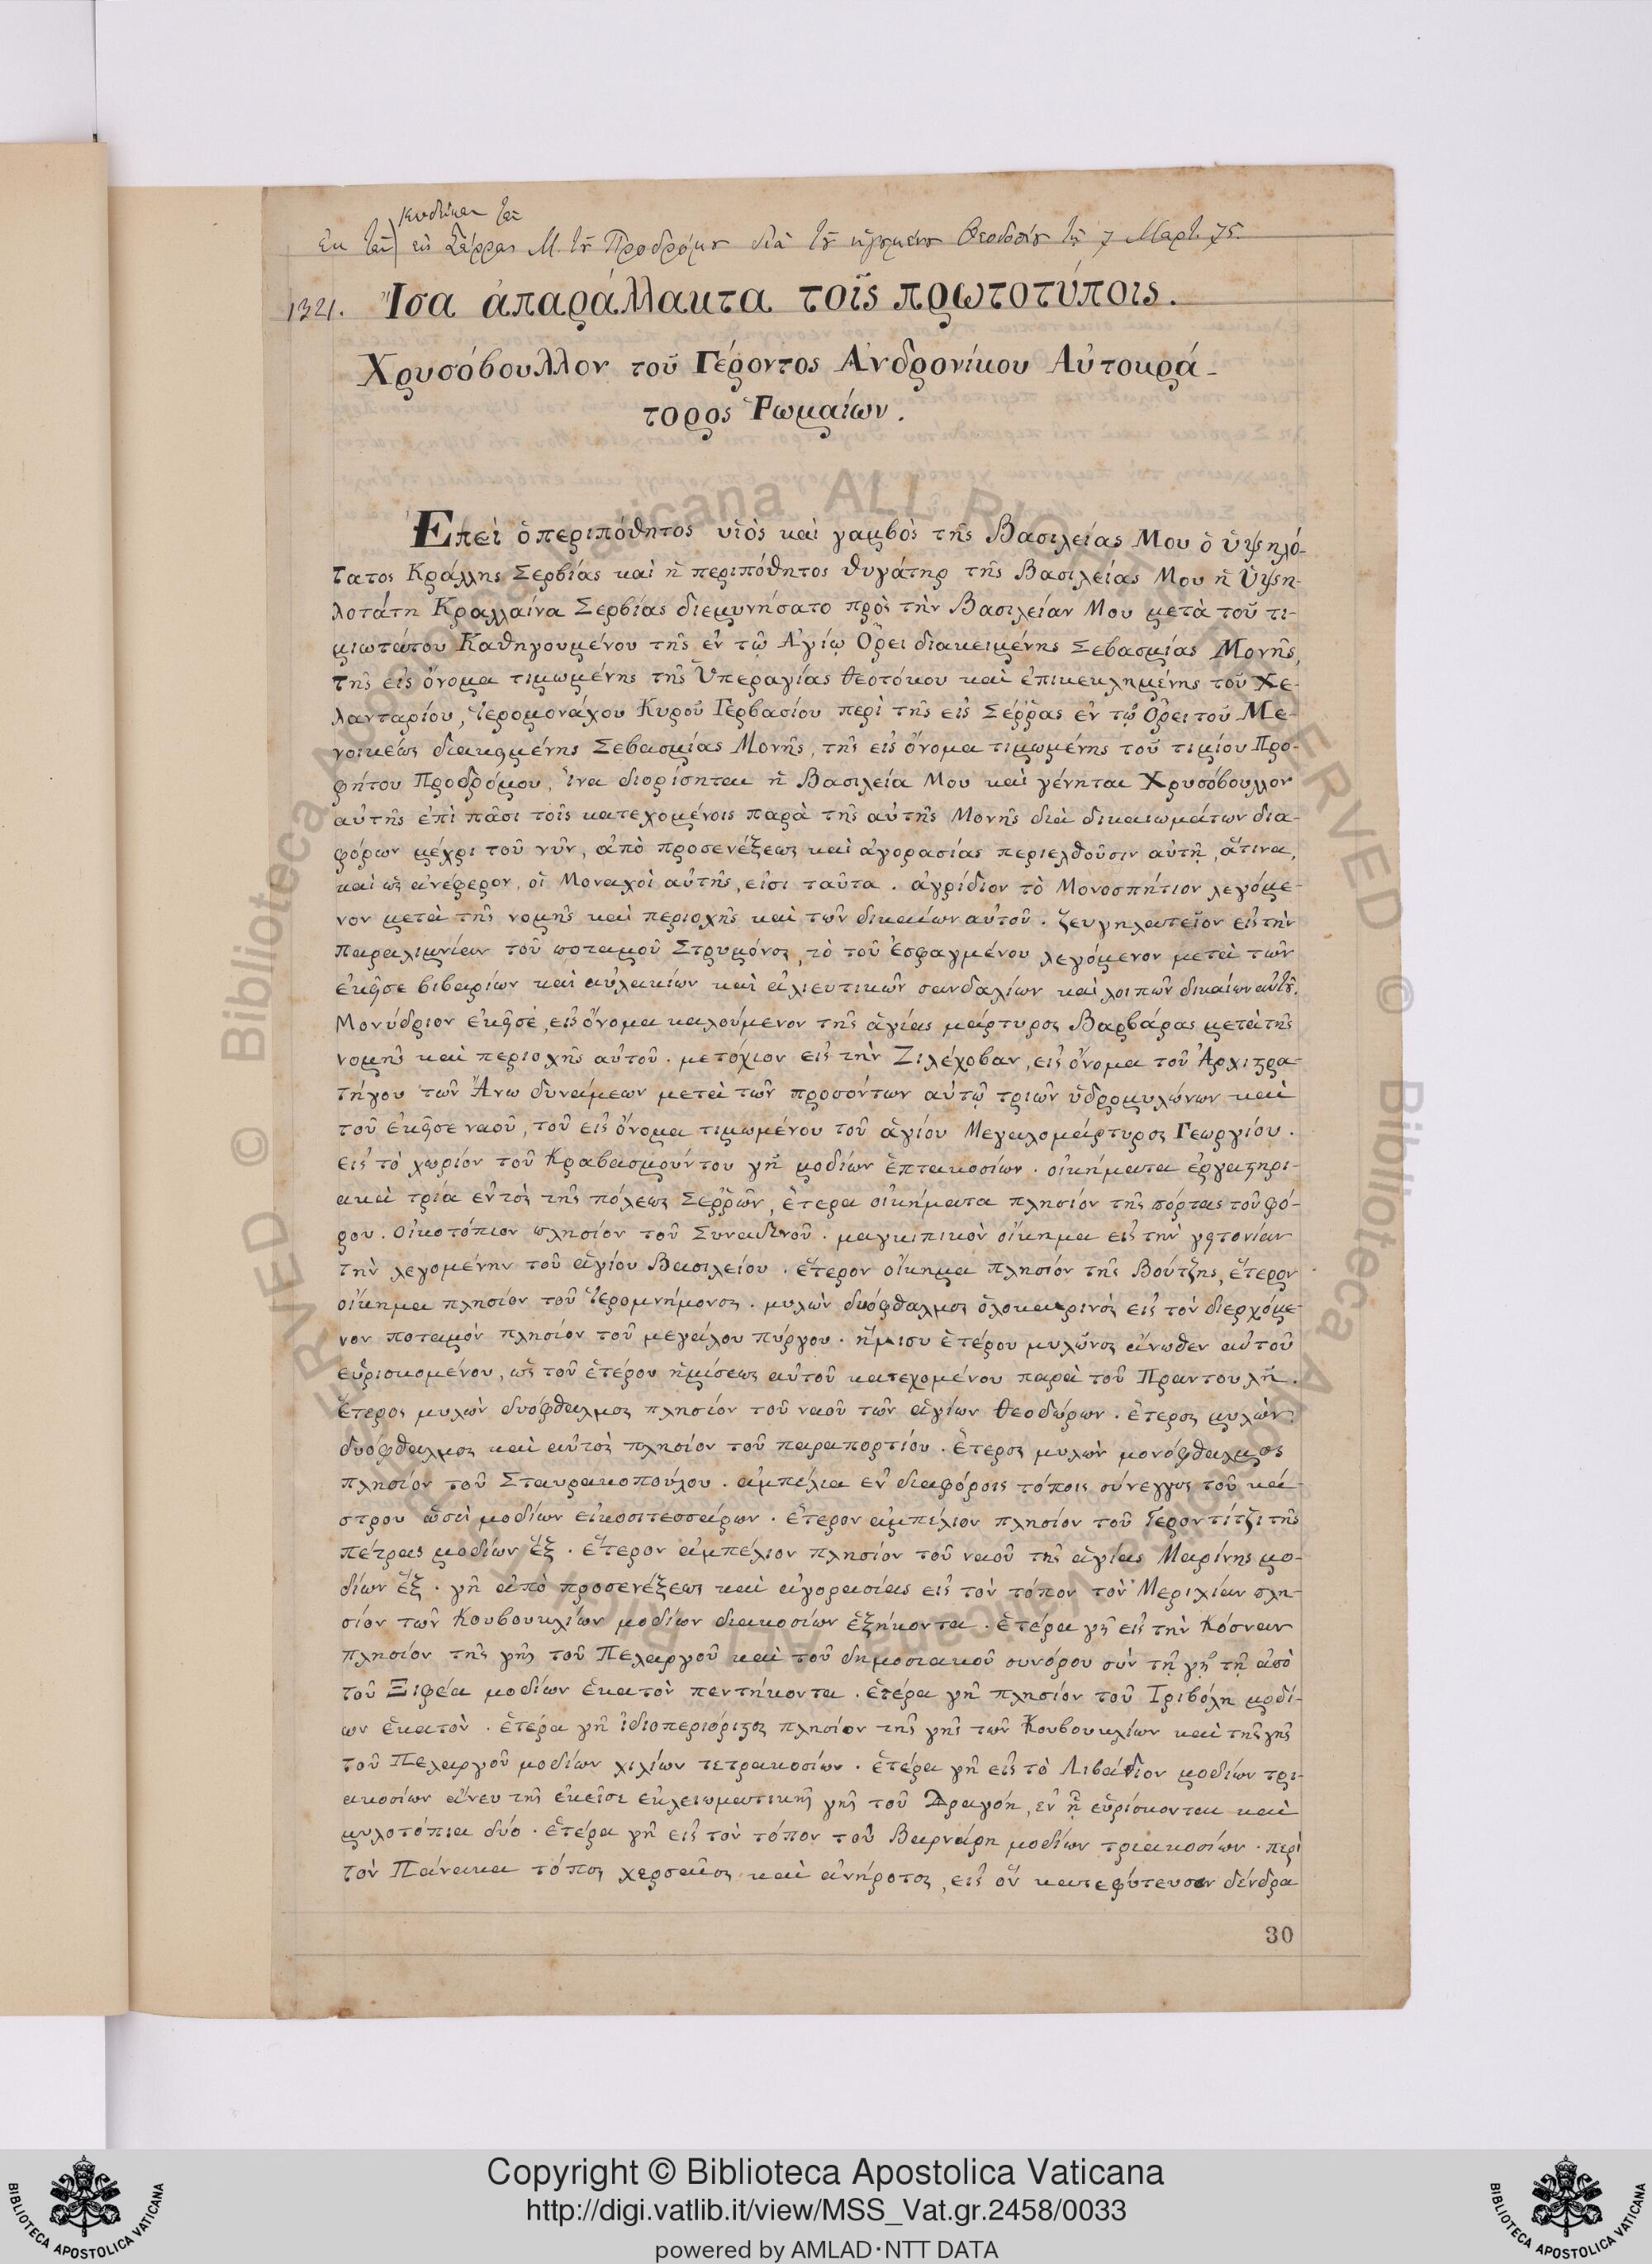 Κώδικος τῆς
Ἐκ τῆς εἰς Σέρρας Μ. τοῦ Προδρόμου διὰ τοῦ ἡγουμένου Θεοδοσίου τῇ 7 Μαρτ. 75.
1321. Ἴσα ἀπαράλλακτα τοῖς πρωτοτύποις.
Χρυσόβουλλον τοῦ Γέροντος Ἀνδρονίκου Αὐτοκρά-
τορος Ῥωμαίων.
Ἐπεὶ ὁ περιπόθητος υἱὸς καὶ γαμβὸς τῆς Βασιλείας Μου ὁ ὑψηλό-
τατος Κράλλης Σερβίας καὶ ἡ περιπόθητος θυγάτηρ τῆς Βασιλείας Μου ἡ Ὑψη-
λοτάτη Κραλλαίνα Σερβίας διεμυνήσατο πρὸς τὴν Βασιλείαν Μου μετὰ τοῦ τι-
μιωτάτου Καθηγουμένου τῆς ἐν τῷ Ἁγίῳ Ὄρει διακειμένης Σεβασμίας Μονῆς,
τῆς εἰς ὄνομα τιμωμένης τῆς Ὑπεραγίας Θεοτόκου καὶ ἐπικεκλημένης τοῦ Χε-
λανταρίου, Ἱερομονάχου Κυροῦ Γερβασίου περὶ τῆς εἰς Σέῤῥας ἐν τῷ Ὄρει τοῦ Με-
νοικέως διακειμένης Σεβασμίας Μονῆς, τῆς εἰς ὄνομα τιμωμένης τοῦ τιμίου Προ-
φήτου Προδρόμου, ἵνα διορίσηται ἡ Βασιλεία Μου καὶ γένηται Χρυσόβουλλον
αὐτῆς ἐπὶ πᾶσι τοῖς κατεχομένοις παρὰ τῆς αὐτῆς Μονῆς διὰ δικαιωμάτων δια-
φόρων μέχρι τοῦ νῦν, ἀπὸ προσενέξεως καὶ ἀγορασίας περιελθοῦσιν αὐτῇ, ἅτινα,
καὶ ὡς ἀνέφερον, οἱ Μοναχοὶ αὐτῆς, εἰσι ταῦτα. ἀγρίδιον τὸ Μονοσπήτιον λεγόμε-
νον μετὰ τῆς νομῆς καὶ περιοχῆς καὶ τῶν δικαίων αὐτοῦ. ζευγηλατεῖον εἰς τὴν
παραλιμνίαν τοῦ ποταμοῦ Στρυμόνος, τὸ τοῦ Ἐσφαγμένου λεγόμενον μετὰ τῶν
ἐκεῖσε βιβαρίων καὶ αὐλακίων καὶ ἁλιευτικῶν σανδαλίων καὶ λοιπῶν δικαίων αὐτοῦ.
Μονύδριον ἐκεῖσέ, εἰς ὄνομα καλούμενον τῆς ἁγίας μάρτυρος Βαρβάρας μετὰ τῆς
νομῆς καὶ περιοχῆς αὐτοῦ. μετόχιον εἰς τὴν Ζιλέχοβαν, εἰς ὄνομα τοῦ Ἀρχιστρα-
τήγου τῶν Ἄνω δυνάμεων μετὰ τῶν προσόντων αὐτῷ τριῶν ὑδρομυλώνων καὶ
τοῦ ἐκεῖσε ναοῦ, τοῦ εἰς ὄνομα τιμωμένου τοῦ ἁγίου Μεγαλομάρτυρος Γεωργίου.
εἰς τὸ χωρίον τοῦ Κραβασμούντου γῆ μοδίων ἑπτακοσίων. οἰκήματα ἐργαστηρι-
ακὰ τρία ἐντὸς τῆς πόλεως Σεῤῥῶν, ἕτερα οἰκήματα πλησίον τῆς πόρτας τοῦ φό-
ρου. οἰκοτόπιον πλησίον τοῦ Συναδινοῦ. μαγκιπικὸν οἴκημα εἰς τὴν γειτονίαν
τὴν λεγομένην τοῦ ἁγίου Βασιλείου. ἕτερον οἴκημα πλησίον τῆς Βούτζης, ἕτερον
οἴκημα πλησίον τοῦ Ἱερομνήμονος. μυλὼν δυόφθαλμος ὁλοκαιρινὸς εἰς τὸν διερχόμε-
νον ποταμὸν πλησίον τοῦ μεγάλου πύργου. ἥμισυ ἑτέρου μυλῶνος ἄνωθεν αὐτοῦ
εὑρισκομένου, ὡς τοῦ ἑτέρου ἡμίσεως αὐτοῦ κατεχομένου παρὰ τοῦ Πραντουλῆ.
ἕτερος μυλὼν δυόφθαλμος πλησίον τοῦ ναοῦ τῶν ἁγίων Θεοδώρων. ἕτερος μυλὼν
δυόφθαλμος καὶ αὐτὸς πλησίον τοῦ παραπορτίου. ἕτερος μυλὼν μονόφθαλμος
πλησίον τοῦ Σταυρακοπούλου. ἀμπέλια ἐν διαφόροις τόποις σύνεγγυς τοῦ κά-
στρου ὡσεὶ μοδίων εἰκοσιτεσσάρων. ἕτερον ἀμπέλιον πλησίον τοῦ Γεροντίτζι τῆς
πέτρας μοδίων ἕξ. ἕτερον ἀμπέλιον πλησίον τοῦ ναοῦ τῆς ἁγίας Μαρίνης μο-
δίων ἕξ. γῆ ἀπὸ προσενέξεως καὶ ἀγορασίας εἰς τὸν τόπον τὸν Μεριλίαν πλη-
σίον τῶν Κουβουκλίων μοδίων διακοσίων ἑξήκοντα. ἑτέρα γῆ εἰς τὴν Κόσναν
πλησίον τῆς γῆς τοῦ Πελαργοῦ καὶ τοῦ δημοσιακοῦ συνόρου σὺν τῇ γῇ τῇ ἀπὸ
τοῦ Ξιφέα μοδίων ἑκατὸν πεντήκοντα. ἑτέρα γῆ πλησίον τοῦ Τριβόλη μοδί-
ων ἑκατὸν. ἑτέρα γῆ ἰδιοπεριόριστος πλησίον τῆς γῆς τῶν Κουβουκλίων καὶ τῆς γῆς
τοῦ Πελαργοῦ μοδίων χιλίων τετρακοσίων. ἑτέρα γῆ εἰς τὸ Λιβάδιον μοδίων τρι-
ακοσίων ἄνευ τῆς ἐκεῖσε ἐκλειωματικῆς γῆς τοῦ Δραγόη, ἐν ᾗ εὑρίσκονται καὶ
μυλοτόπια δύο. ἑτέρα γῆ εἰς τὸν τόπον τοῦ Βαρνάρη μοδίων τριακοσίων. περὶ
τὸν Πάνακα τόπος χερσαῖος καὶ ἀνήροτος, εἰς ὃν κατεφύτευσαν δένδρα
30
Copyright © Biblioteca Apostolica Vaticana
http://digi.vatlib.it/view/MSS_Vat.gr.2458/0033
powered by AMLAD·NTT DATA